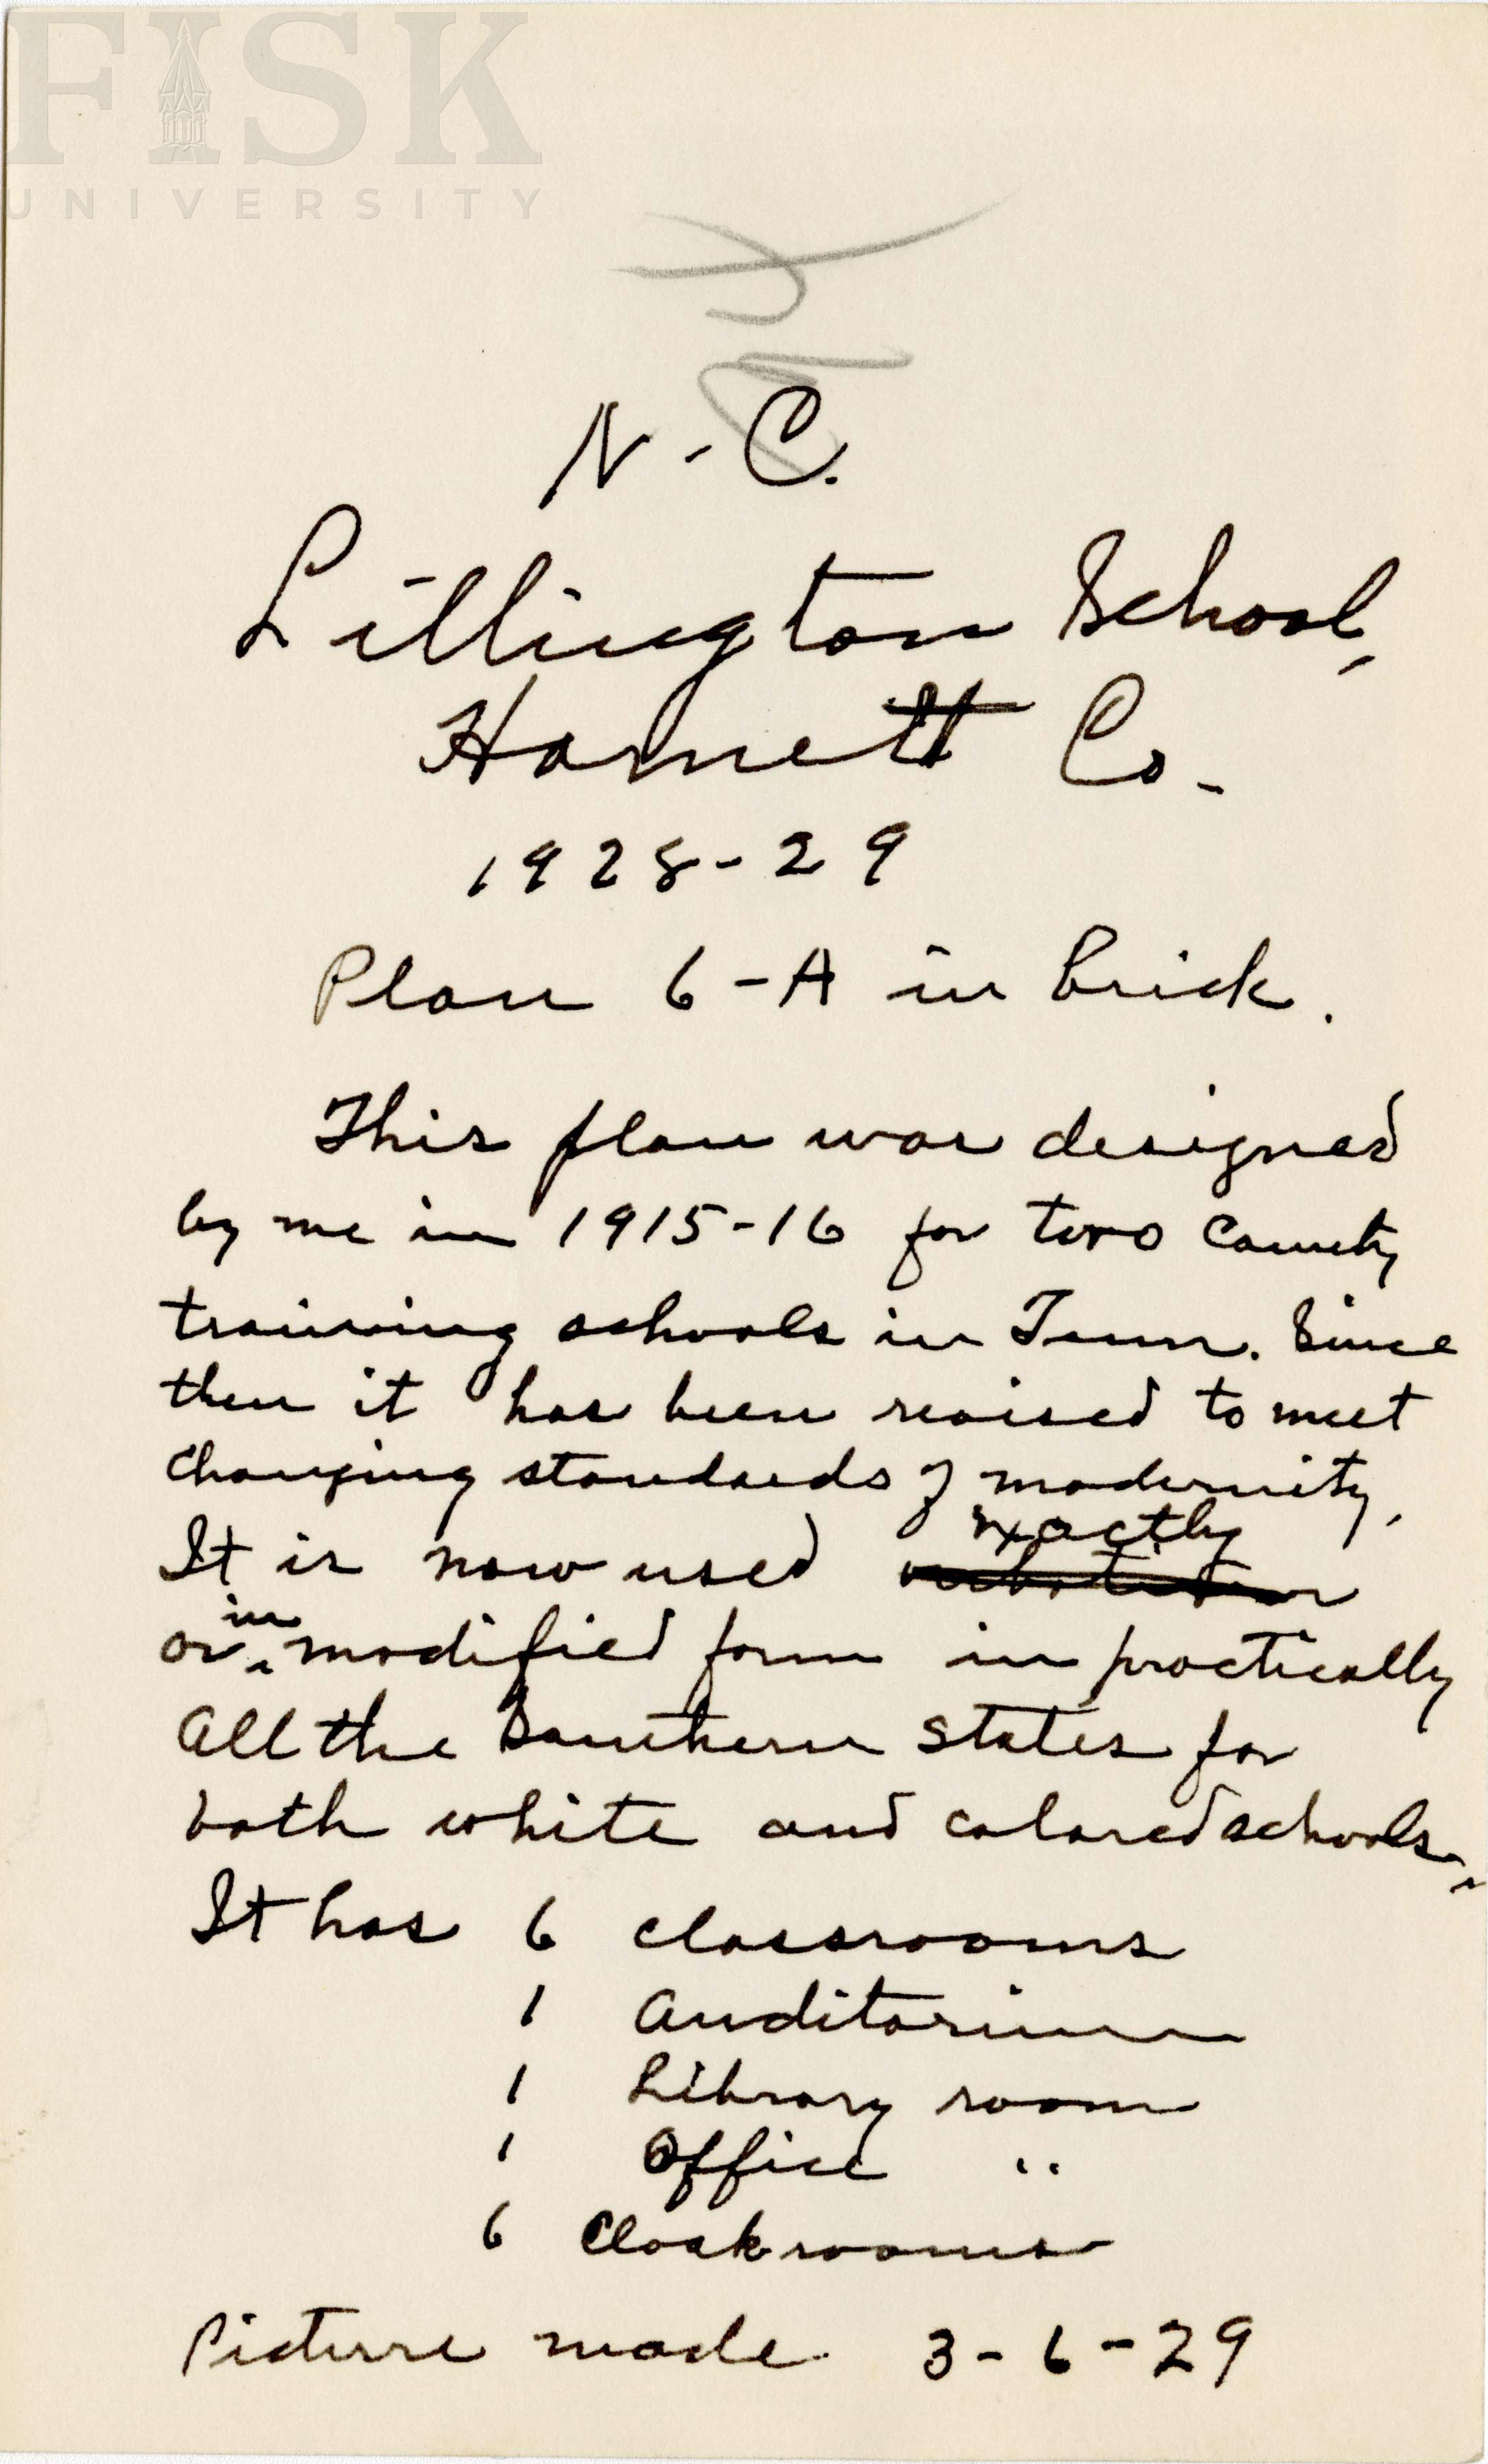 FISK
UNIVERSITY
N-C.
Lillington School,
Harnett Co.
1928-29
Plan 6-A in brick.
This plan was designed
by me in 1915-16 for two county
training schools in Tenn. Since
then it has been revised to meet
changing standards of modernity.
exactly
It is now used verbatim
in
or modified form in practically
all the Southern States for
both white and colored schools.
It has 6 classrooms
1 Auditorium
1 Library room
1 Office "
6 Cloakrooms
Picture made 3-6-29